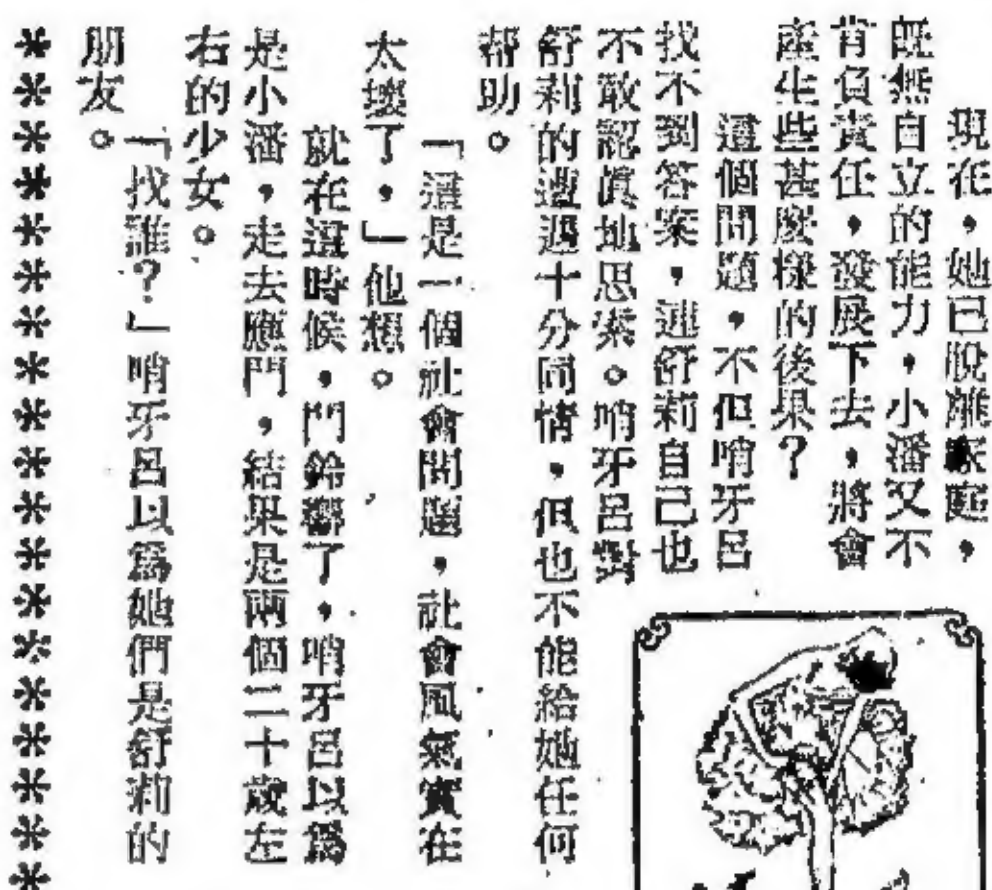 現在，她已脫離家庭，
既無自立的能力，小潘又不
肯負責任，發展下去，將會
產生些甚麼樣的後果？
這個問題，不但哨牙呂
找不到答案，連舒莉自己也
不敢認眞地思索。哨牙呂對
舒莉的遭遇十分同情，但也不能給她任何
幫助。
「這是一個社會問題，社會風氣實在
太壞了，」他想。
就在這時候，門鈴響了，哨牙呂以爲
是小潘，走去應門，結果是兩個二十歲左
右的少女。
「找誰？」哨牙呂以爲她們是舒莉的
朋友。
＊＊＊＊＊＊＊＊＊＊＊＊＊＊＊＊＊＊＊